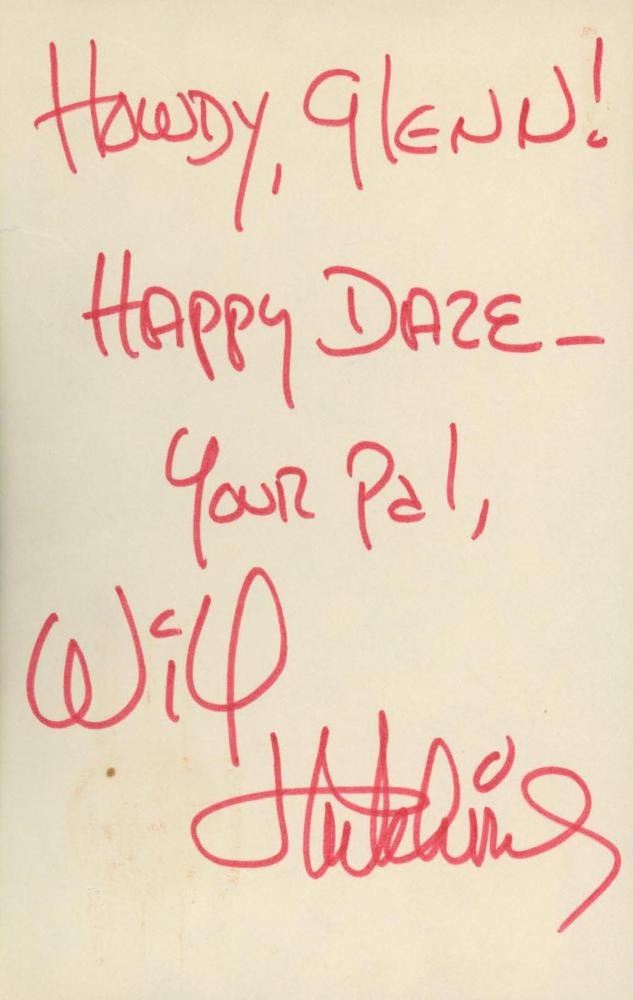 Howdy, Glenn!
Happy Daze –
Your Pal,
Will
Hutchins